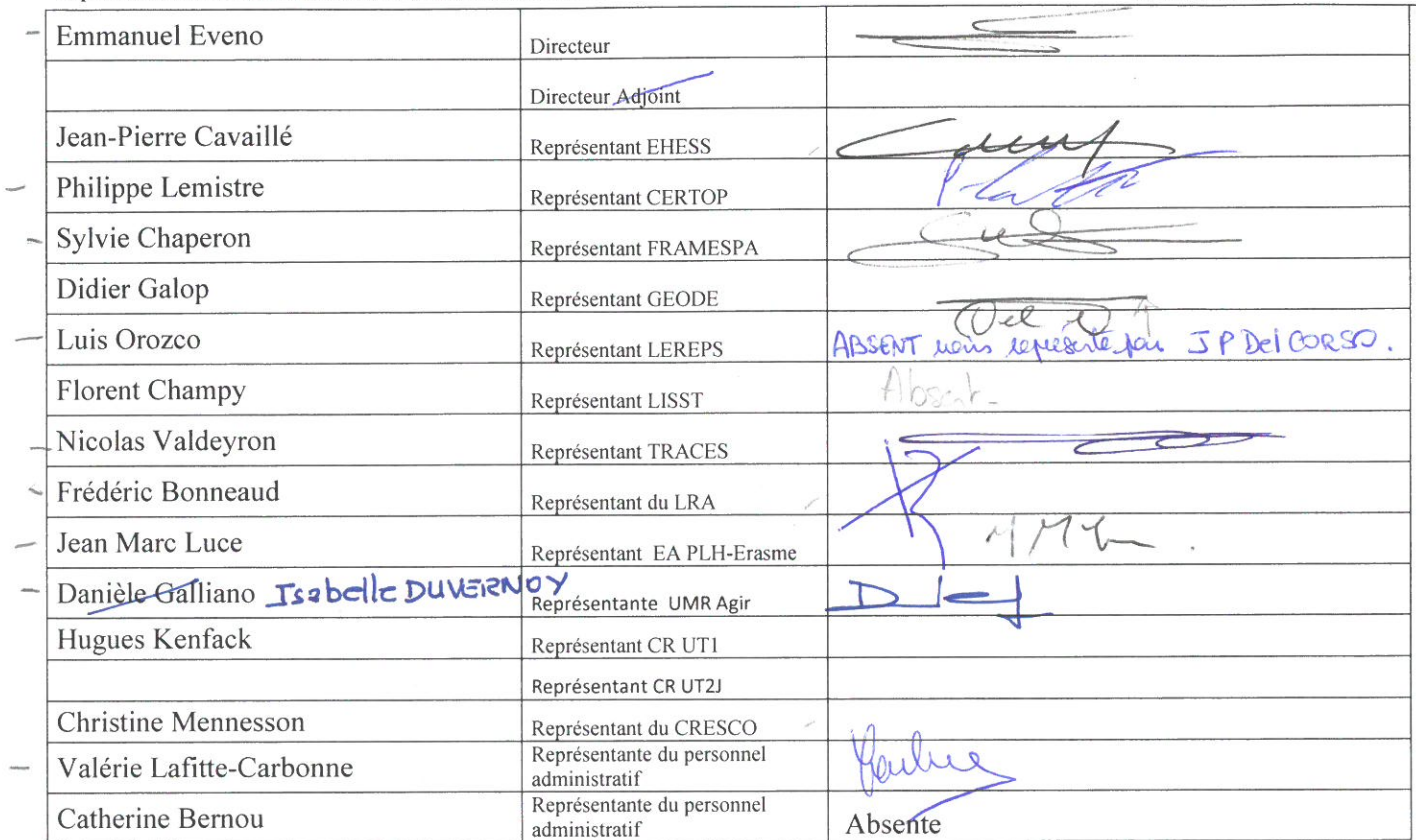 Emmanuel Eveno Directeur
Directeur Adjoint
Jean-Pierre Cavaillé Représentant EHESS
Philippe Lemistre Représentant CERTOP
Sylvie Chaperon Représentant FRAMESPA
Didier Galop Représentant GEODE
Luis Orozco Représentant LEREPS ABSENT mais représenté par JP Del CORSO.
Florent Champy Représentant LISST Absent-
Nicolas Valdeyron Représentant TRACES
Frédéric Bonneaud Représentant du LRA
Jean Marc Luce Représentant EA PLH-Erasme
Danièle Galliano Isabelle DUVERNOY Représentante UMR Agir
Hugues Kenfack Représentant CR UT1
Représentant CR UT2J
Christine Mennesson Représentant du CRESCO
Valérie Lafitte-Carbonne Représentante du personnel
administratif
Catherine Bernou Représentante du personnel
administratif Absente